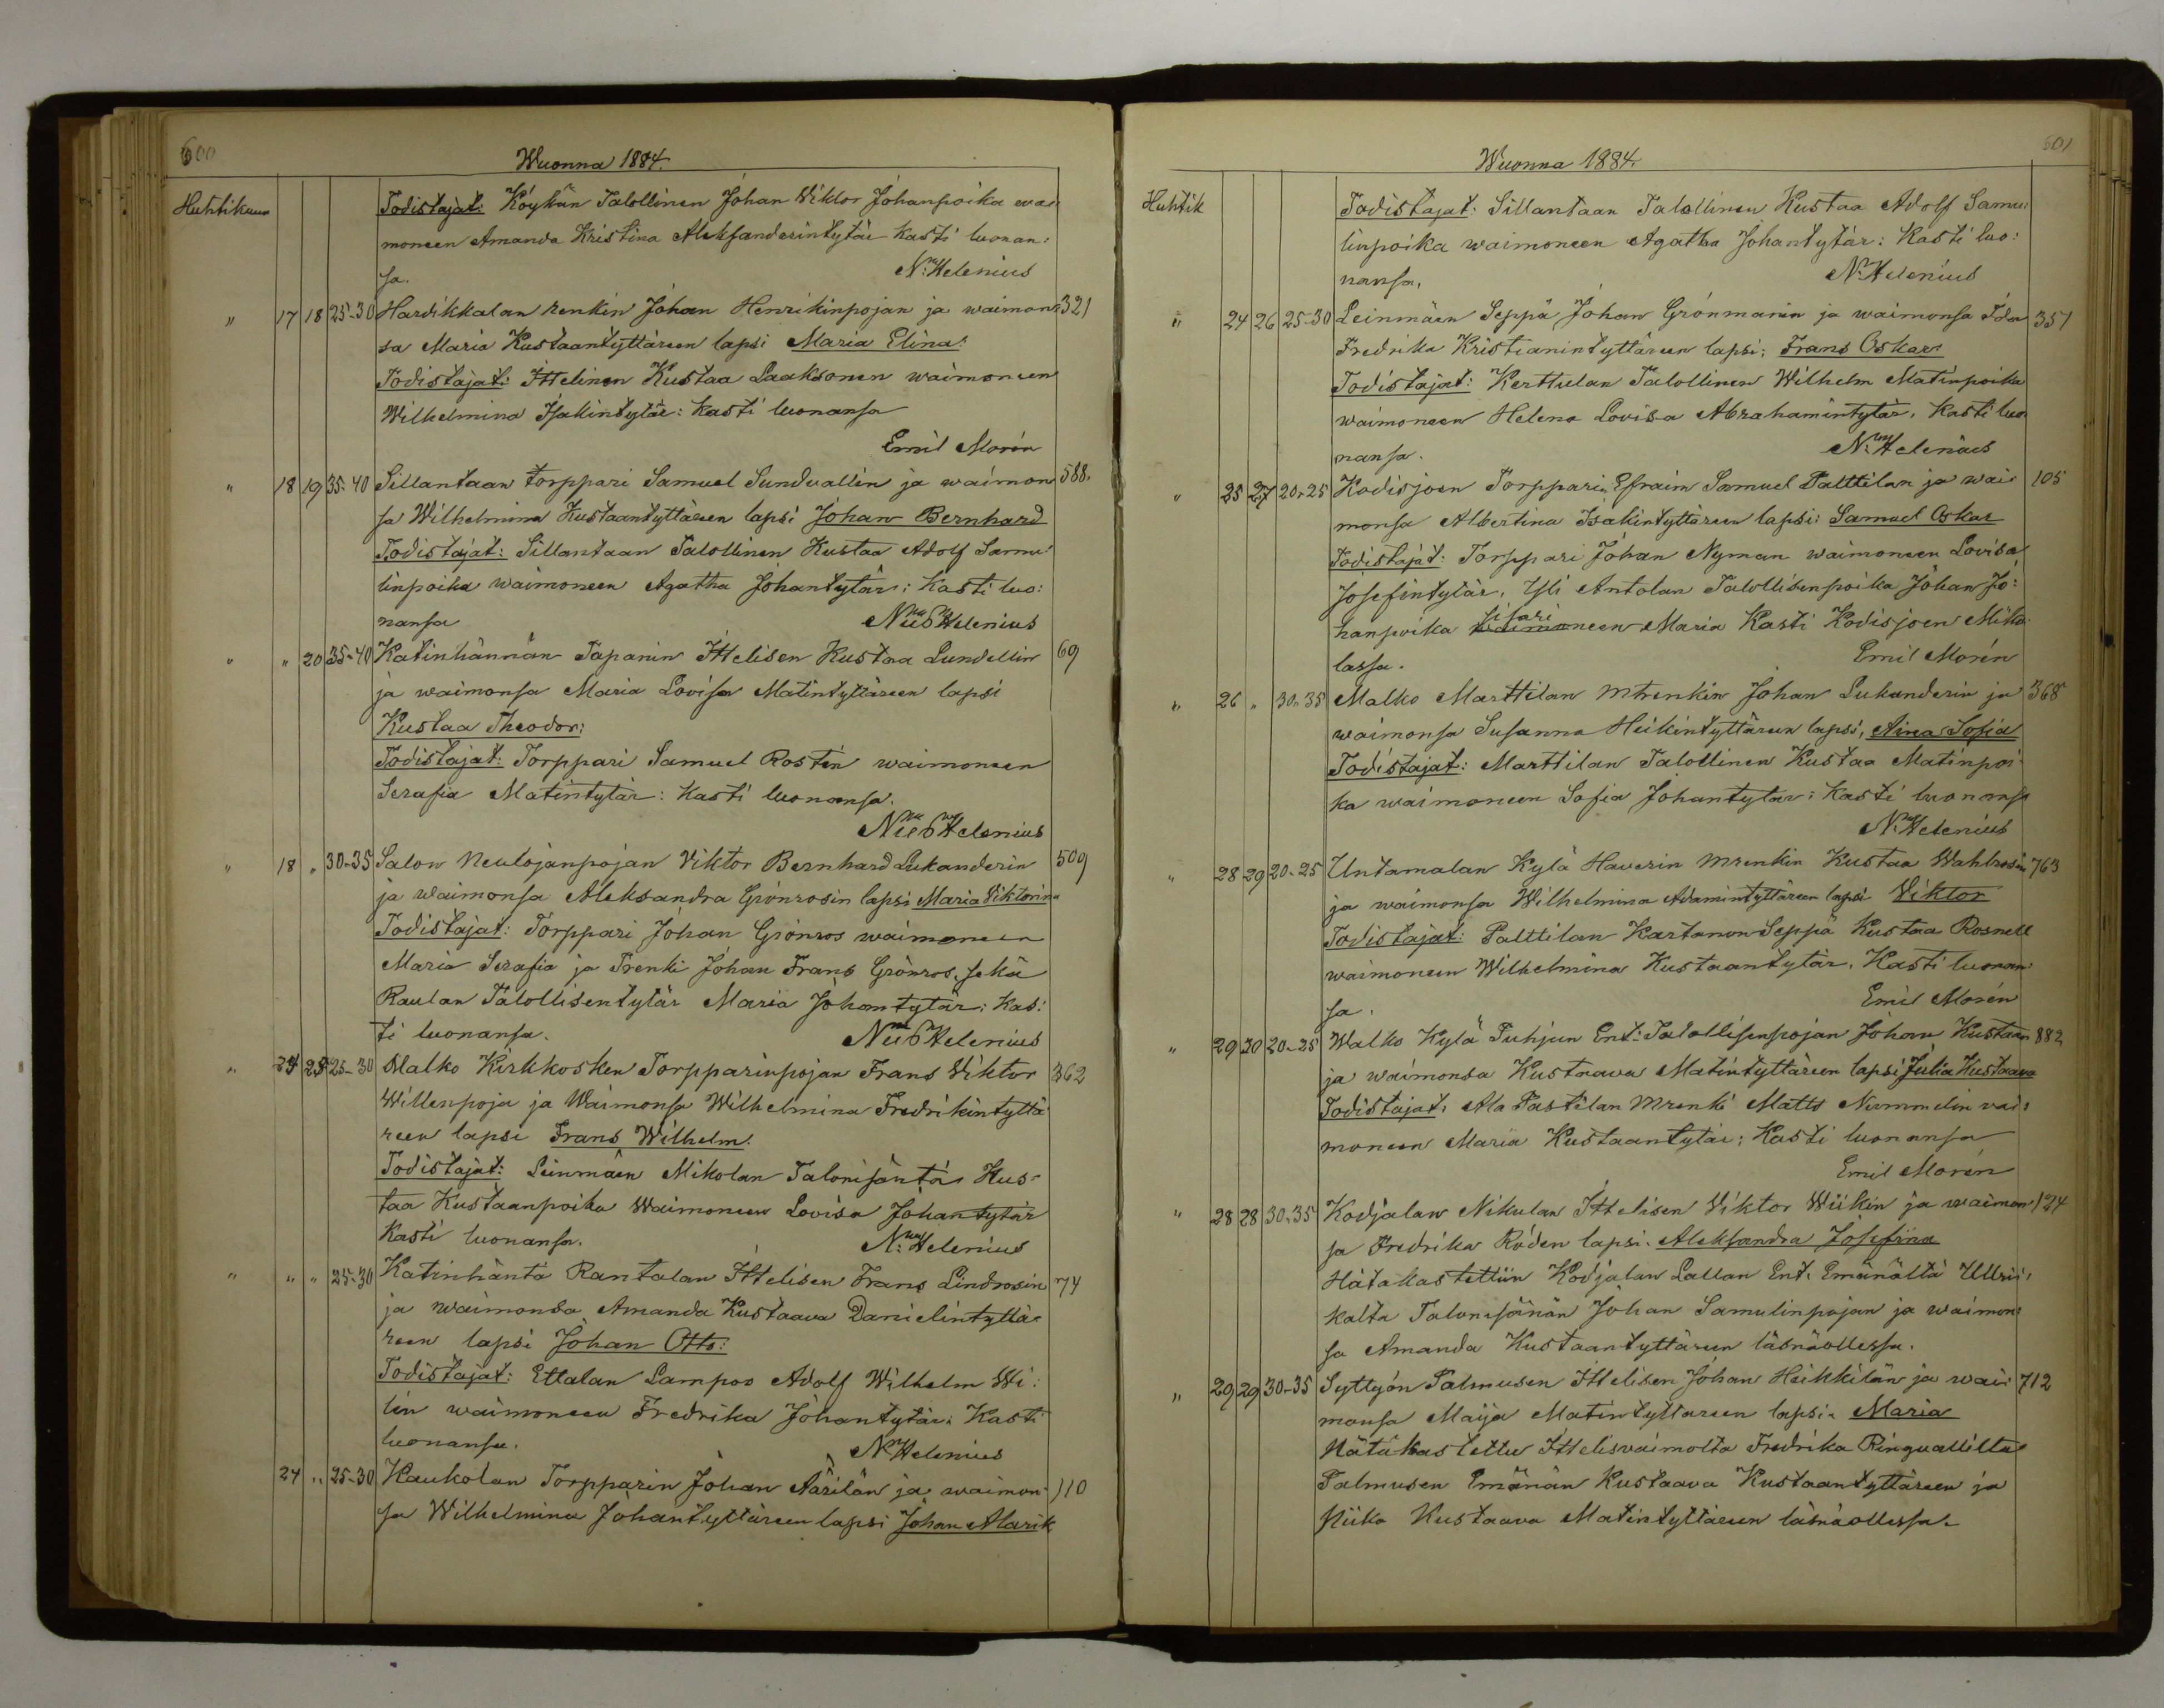 600
Wuonna 1884.
Huhtikuun
Todistajat: Köykän Talollinen Johan Wiktor Johanpoika wai
moneen Amanda Kristina Aleksanderintytär kasti luonan:
sa. N. Helenius
" 17 18 25-30 Hardikkalan renkin Johan Henrikinpojan ja waimon= 321
sa Maria Kustaantyttäreen lapsi Maria Elina:
Todistajat: Ittelinen Kustaa Laaksonen waimoneen
Wilhelmina Isakintytär: Kasti luonansa
Emil Morén
" 18 19 35-40 Sillantaan torppari Samuel Sundvallin ja waimon 588.
sa Wilhelmina Kustaantyttäreen lapsi Johan Bernhard
Todistajat: Sillantaan Talollinen Kustaa Adolf Samu:
linpoika waimoneen Agatha Johantytär: Kasti luo:
nansa Helenius
" " 20 35-40 Katinhännän Tapanin Ittelisen Kustaa Lundellin 69
ja waimonsa Maria Lovisa Matintyttäreen lapsi
Kustaa Theodor:
Todistajat: Torppari Samuel Rostén waimoneen
Serafia Matintytär: Kasti luonansa.
Helenius
" 18 " 30-35 Salon Neulojanpojan Viktor Bernhard Lukanderin 509
ja waimonsa Aleksandra Grönrosin lapsi Maria Viktorina
Todistajat: Torppari Johan Grönros waimoneen
Maria Serafia ja Trenki Johan Frans Grönros, sekä
Raulan Talollisentytär Maria Johantytär: Kas:
ti luonansa. Helenius
" 25-30 Malko Kirkkosken Torpparinpojan Frans Viktor 362
Willenpoja ja Waimonsa Wilhelmina Fredrikintyttä
reen lapsi Frans Wilhelm:
Todistajat: Leinmäen Mikolan Talonisäntä Kus=
taa Kustaanpoika Waimoneen Lovisa Johantytär
Kasti luonansa. N. Helenius
" " " 25-30 Katinhäntä Rantalan Ittelisen Frans Lindrosin 74
ja waimonsa Amanda Kustaava Danielintyttä=
reen lapsi Johan Otto:
Todistajat: Ettalan Lampoo Adolf Wilhelm Wi:
lin waimoneen Fredrika Johantytär: Kasti
luonansa. N. Helenius
24 " 25-30 Kaukolan Torpparin Johan Äärilän ja waimon= 110
sa Wilhelmina Johantyttäreen lapsi Johan Alarik
601
Wuonna 1884.
Huhtik
Todistajat: Sillantaan Talollinen Kustaa Adolf Samu:
linpoika waimoneen Agatha Johantytär: Kasti luo:
nansa. N. Helenius
" 24 26 25-30 Leinmäen Seppä Johan Grönmanin ja waimonsa Ida 351
Fredrika Kristianintyttäreen lapsi; Frans Oskar:
Todistajat: Kerttulan Talollinen Wilhelm Matinpoika
waimoneen Helena Lovisa Abrahamintytär, Kasti luo
nansa. N. Helenius
" 25 27 20-25 Kodisjoen Torpparin Efraim Samuel Palttilan ja wai= 105
monsa Albertina Isakintyttäreen lapsi: Samuel Oskar
Todistajat: Torppari Johan Nyman waimoneen Lovisa
Josefintytär, Yli Antolan Talollisenpoika Johan Jo:
hanpoika sisari waimoneen Maria Kasti Kodisjoen Miko
lassa. Emil Morén
" 26 " 30-35 Malko Marttilan mtrenkin Johan Lukanderin ja 368
waimonsa Susanna Heikintyttäreen lapsi, Aina Sofia
Todistajat: Marttilan Talollinen Kustaa Matinpoi
ka waimoneen Sofia Johantytär: Kasti luonansa
N. Helenius
" 28 29 20-25 Untamalan Kylä Haverin mrenkin Kustaa Wahlrosin 763
ja waimonsa Wilhelmina Adamintyttäreen lapsi Viktor
Todistajat: Palttilan Kartanon Seppä Kustaa Rosnell
waimoneen Wilhelmina Kustaantytär. Kasti luonan:
sa. Emil Morén
" 29 30 20-25 Walko Kylä Puhjun Ent: Talollisenpojan Johan Kustaan 882
ja waimonsa Kustaava Matintyttäreen lapsi Julia Kustaava
Todistajat: Ala Pastilan mrenki Matts Nummelin vai:
moneen Maria Kustaantytär: Kasti luonansa
Emil Morén
" 28 28 30-35 Kodjalan Nikulan Ittelisen Viktor Wiikin ja waimon 124
sa Fredrika Rodén lapsi. Aleksandra Josefiina
Hätäkastettiin Kodjalan Lallan Ent. Emänältä Ullrii:
kalta Talonisänän Johan Samulinpojan ja waimon:
sa Amanda Kustaantyttäreen läsnäollessa.
" 29 29 30-35 Syttyön Palmusen Ittelisen Johan Heikkilän ja wai= 712
monsa Maija Matintyttäreen lapsi. Maria
Hätäkastettu Ittelisvaimolta Fredrika Ringvallilta
Palmusen Emänän Kustaava Kustaantyttäreen ja
Niika Kustaava Matintyttäreen läsnäollessa.